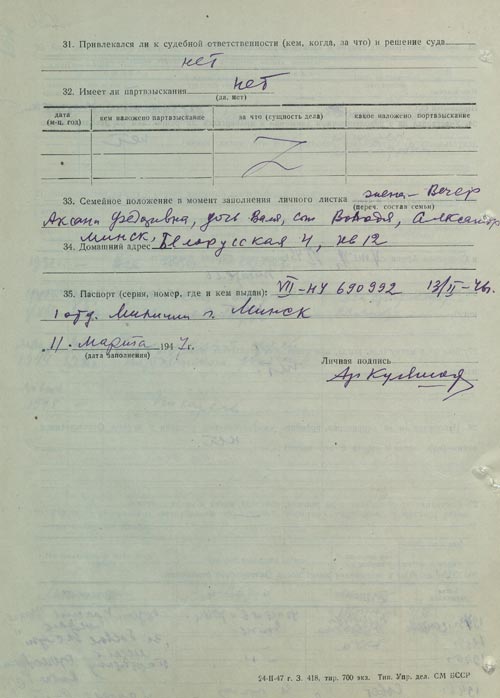 31. Привлекался ли к судебной ответственности (кем, когда, за что) и решение суда
нет
32. Имеет ли партвзыскания нет
(да, нет)
дата (м-ц, год) кем наложено партвзыскание за что (сущность дела) какое наложено портвзыскание
Z
33. Семейное положение в момент заполнения личного листка жена – Вечер
(переч. состав семьи)
Аксана Федоровна, дочь Валя, сын Володя, Александр
34. Домашний адрес Минск, Белорусская 4, кв 12
35. Паспорт (серия, номер, где и кем выдан): VII–НУ 690992 13/II–46г.
1 отд. Милиции г. Минск
„11" марта 1947г.
(дата заполнения)
Личная подпись
24-II-47 г. З. 418, тир. 700 экз. Тип. Упр. дел. СМ БССР